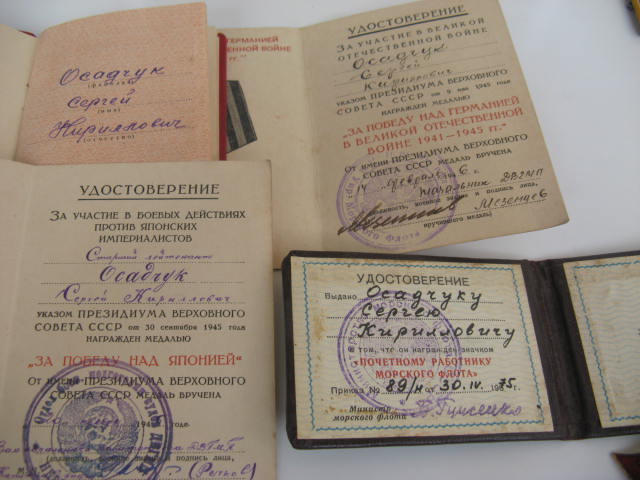 Осадчук
(фамилия)
Сергей
(имя)
Кириллович
(отчество)
ГЕРМАНИЕЙ
ВОЙНЕ
гг."
УДОСТОВЕРЕНИЕ
ЗА УЧАСТИЕ В ВЕЛИКОЙ
ОТЕЧЕСТВЕННОЙ ВОЙНЕ
Осадчук
Сергей
Кириллович
УКАЗОМ ПРЕЗИДИУМА ВЕРХОВНОГО
СОВЕТА СССР от 9 мая 1945 года
НАГРАЖДЕН МЕДАЛЬЮ
"ЗА ПОБЕДУ НАД ГЕРМАНИЕЙ
В ВЕЛИКОЙ ОТЕЧЕСТВЕННОЙ
ВОЙНЕ 1941—1945 гг."
От имени ПРЕЗИДИУМА ВЕРХОВНОГО
СОВЕТА СССР МЕДАЛЬ ВРУЧЕНА
14 февраля 1946 г.
Начальник
звание и подпись лица,
Мезенцев
вручившего медаль)
УДОСТОВЕРЕНИЕ
ЗА УЧАСТИЕ В БОЕВЫХ ДЕЙСТВИЯХ
ПРОТИВ ЯПОНСКИХ
ИМПЕРИАЛИСТОВ
Старший лейтенант
Осадчук
Сергей Кириллович
УКАЗОМ ПРЕЗИДИУМА ВЕРХОВНОГО
СОВЕТА СССР от 30 сентября 1945 года
НАГРАЖДЕН МЕДАЛЬЮ
"ЗА ПОБЕДУ НАД ЯПОНИЕЙ"
От имени ПРЕЗИДИУМА ВЕРХОВНОГО
СОВЕТА СССР МЕДАЛЬ ВРУЧЕНА
194 года.
подпись лица,
УДОСТОВЕРЕНИЕ
Выдано Осадчуку
Сергею
Кирилловичу
в том, что он награжден значком
"ПОЧЕТНОМУ РАБОТНИКУ
МОРСКОГО ФЛОТА"
Приказ № 89/н от 30.IV.1975
Министр
морского флота